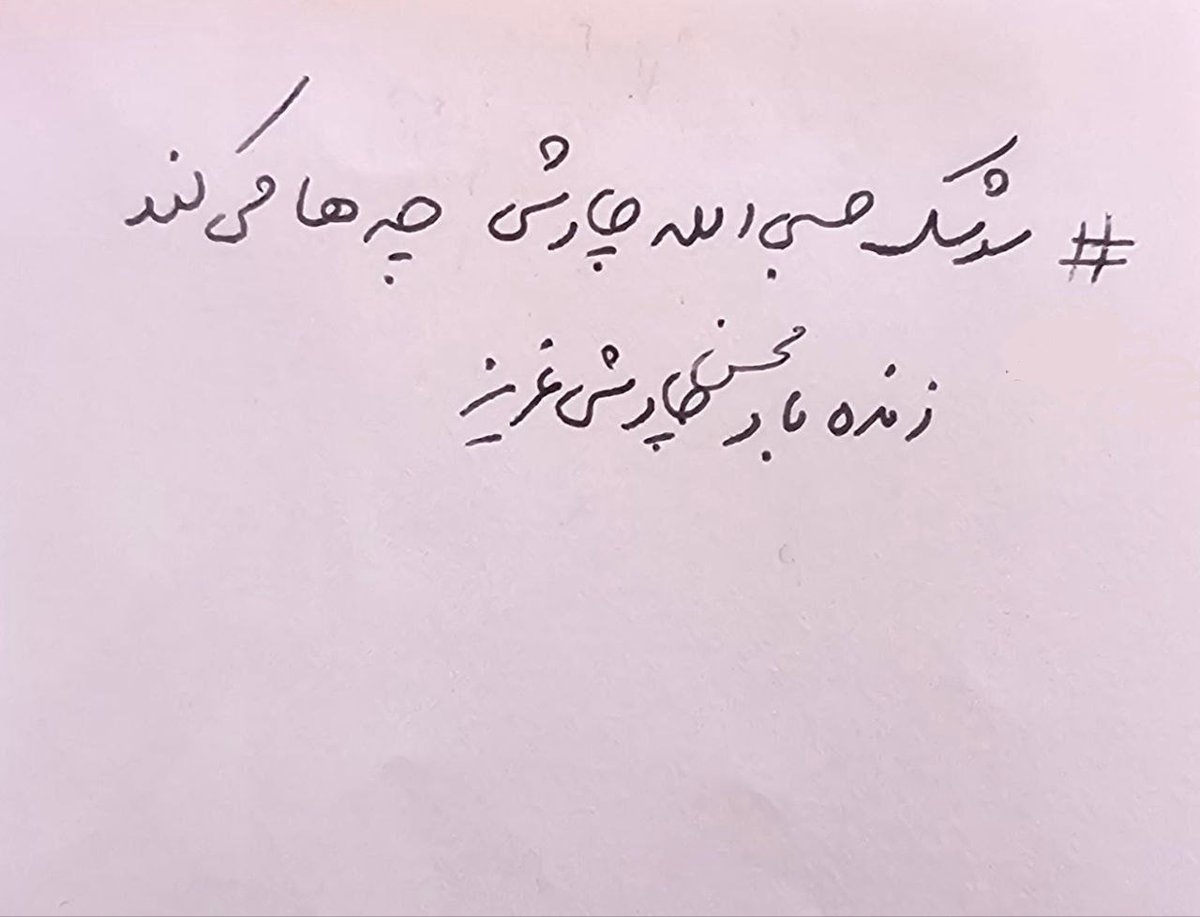 # موشک حسبی الله چاوشی چه ها می کند
زنده باد محسن چاوشی عزیز